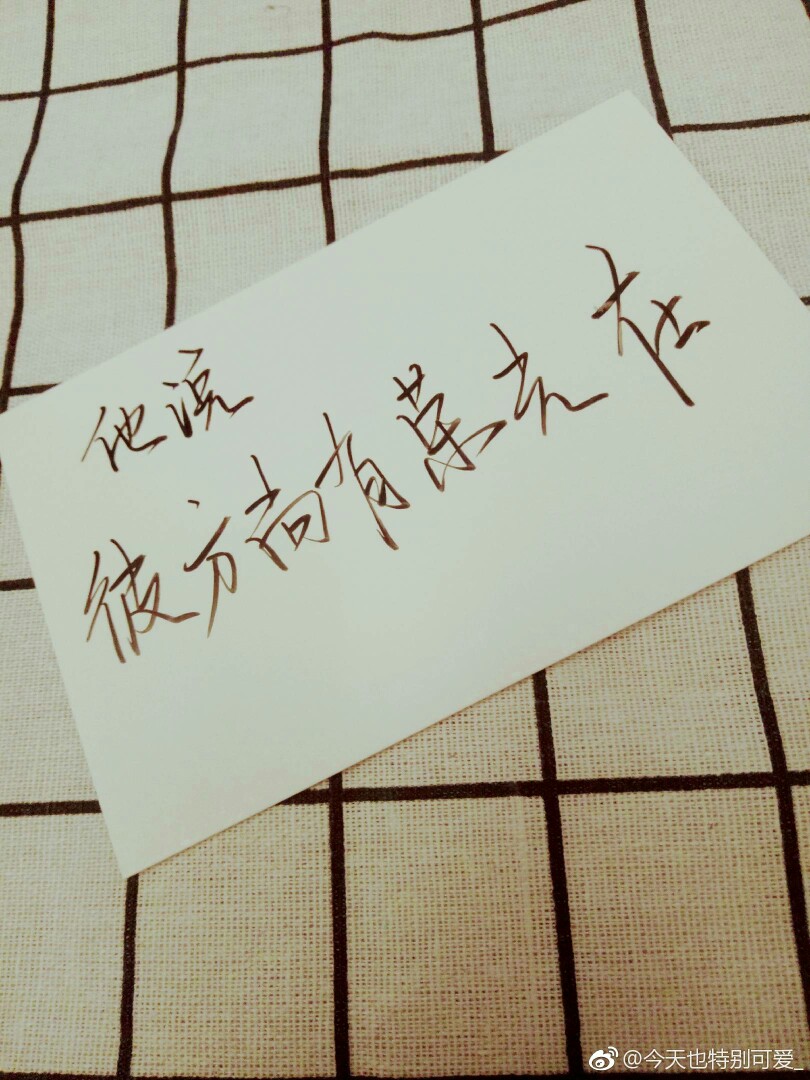 他说
彼方尚有荣光在
@今天也特别可爱_